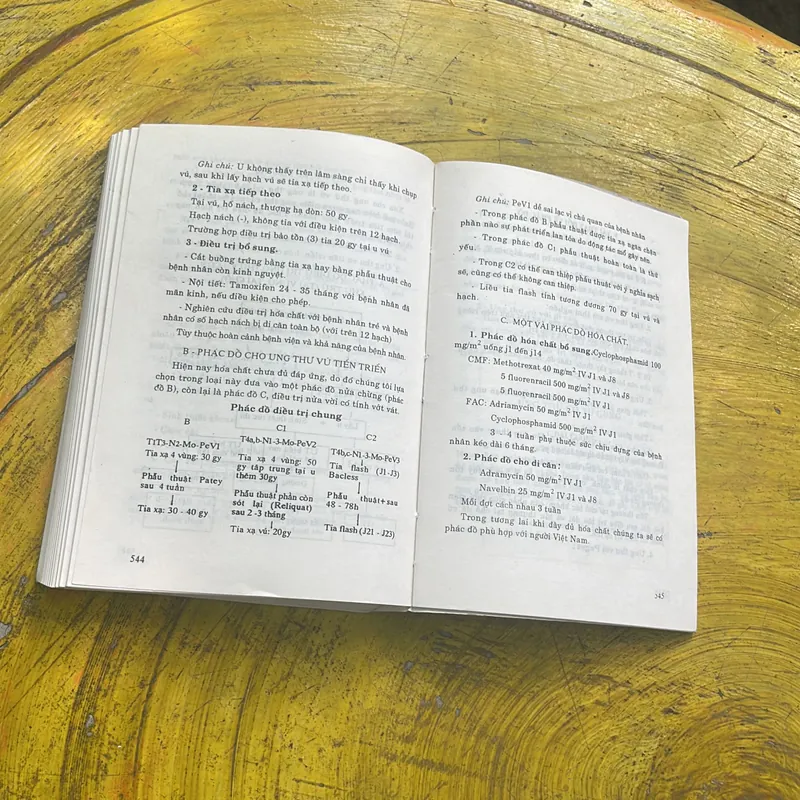 Ghi chú: U không thấy trên lâm sàng chỉ thấy khi chụp
vú, sau khi lấy hạch vú sẽ tia xạ tiếp theo.
2 - Tia xạ tiếp theo
Tại vú, hố nách, thượng hạ đòn: 50 gy.
Hạch nách (-), không tia với điều kiện trên 12 hạch.
Trường hợp điều trị bảo tồn (3) tia 20 gy tại u vú
3 - Điều trị bổ sung.
- Cắt buồng trứng bằng tia xạ hay bằng phẫu thuật cho
bệnh nhân còn kinh nguyệt.
- Nội tiết: Tamoxifen 24 - 35 tháng với bệnh nhân đã
mãn kinh, nếu điều kiện cho phép.
- Nghiên cứu điều trị hóa chất với bệnh nhân trẻ và bệnh
nhân có số hạch nách bị di căn toàn bộ (với trên 12 hạch)
Tùy thuộc hoàn cảnh bệnh viện và khả năng của bệnh nhân.
B - PHÁC ĐỒ CHO UNG THƯ VÚ TIẾN TRIỂN
Hiện nay hóa chất chưa đủ đáp ứng, do đó chúng tôi lựa
chọn trong loại này đưa vào một phác đồ nửa chừng (phác
đồ B), còn lại là phác đồ C, điều trị nửa vời có tính vớt vát.
Phác đồ điều trị chung
B C1 C2
T1T3-N2-Mo-PeV1 T4a,b-N1-3-Mo-PeV2 T4b,c-N1-3-Mo-PeV3
Tia xạ 4 vùng: 30 gy Tia xạ 4 vùng: 50 Tia flash (J1-J3)
gy tập trung tại u Bacless
thêm 30gy
Phẫu thuật Patey Phẫu thuật phần còn Phẫu thuật+sau
sau 4 tuần sót lại (Reliquat) 48 - 78h
sau 2 -3 tháng
Tia xạ: 30 - 40 gy Tia xạ vú: 20gy Tia flash (J21 - J23)
544
Ghi chú: PeV1 dễ sai lạc vì chủ quan của bệnh nhân
- Trong phác đồ B phẫu thuật được tia xạ ngăn chặn
phần nào sự phát triển lan tỏa do động tác mổ gây nên.
- Trong phác đồ C1 phẫu thuật hoàn toàn là thứ
yếu.
- Trong C2 có thể can thiệp phẫu thuật với ý nghĩa sạch
sẽ, cũng có thể không can thiệp.
- Liều tia flash tính tương đương 70 gy tại vú và
hạch.
C. MỘT VÀI PHÁC ĐỒ HÓA CHẤT.
1. Phác đồ hóa chất bổ sung.Cyclophosphamid 100
mg/m² uống j1 đến j14
CMF: Methotrexat 40 mg/m² IV J1 và J8
5 fluorenracil 500 mg/m² IV J1 và J8
5 fluorenracil 500 mg/m² IV J1 và J8
FAC: Adriamycin 50 mg/m² IV J1
Cyclophosphamid 500 mg/m² IV J1
3 - 4 tuần phụ thuộc sức chịu đựng của bệnh
nhân kéo dài 6 tháng.
2. Phác đồ cho di căn:
Adramycin 50 mg/m² IV J1
Navelbin 25 mg/m² IV J1 và J8
Mỗi đợt cách nhau 3 tuần
Trong tương lai khi đầy đủ hóa chất chúng ta sẽ có
phác đồ phù hợp với người Việt Nam.
545